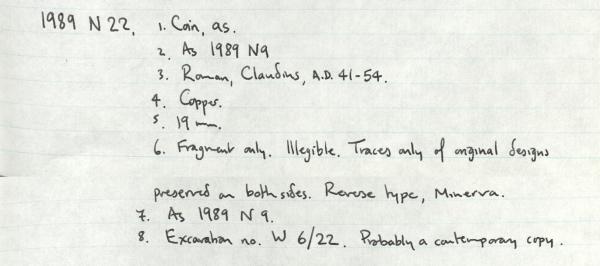 1989 N 22. 1. Coin, as.
2. As 1989 N9
3. Roman, Claudius, A.D. 41-54.
4. Copper.
5. 19 mm.
6. Fragment only. Illegible. Traces only of original designs
preserved on both sides. Reverse type, Minerva.
7. As 1989 N 9.
8. Excavation no. W 6/22. Probably a contemporary copy.